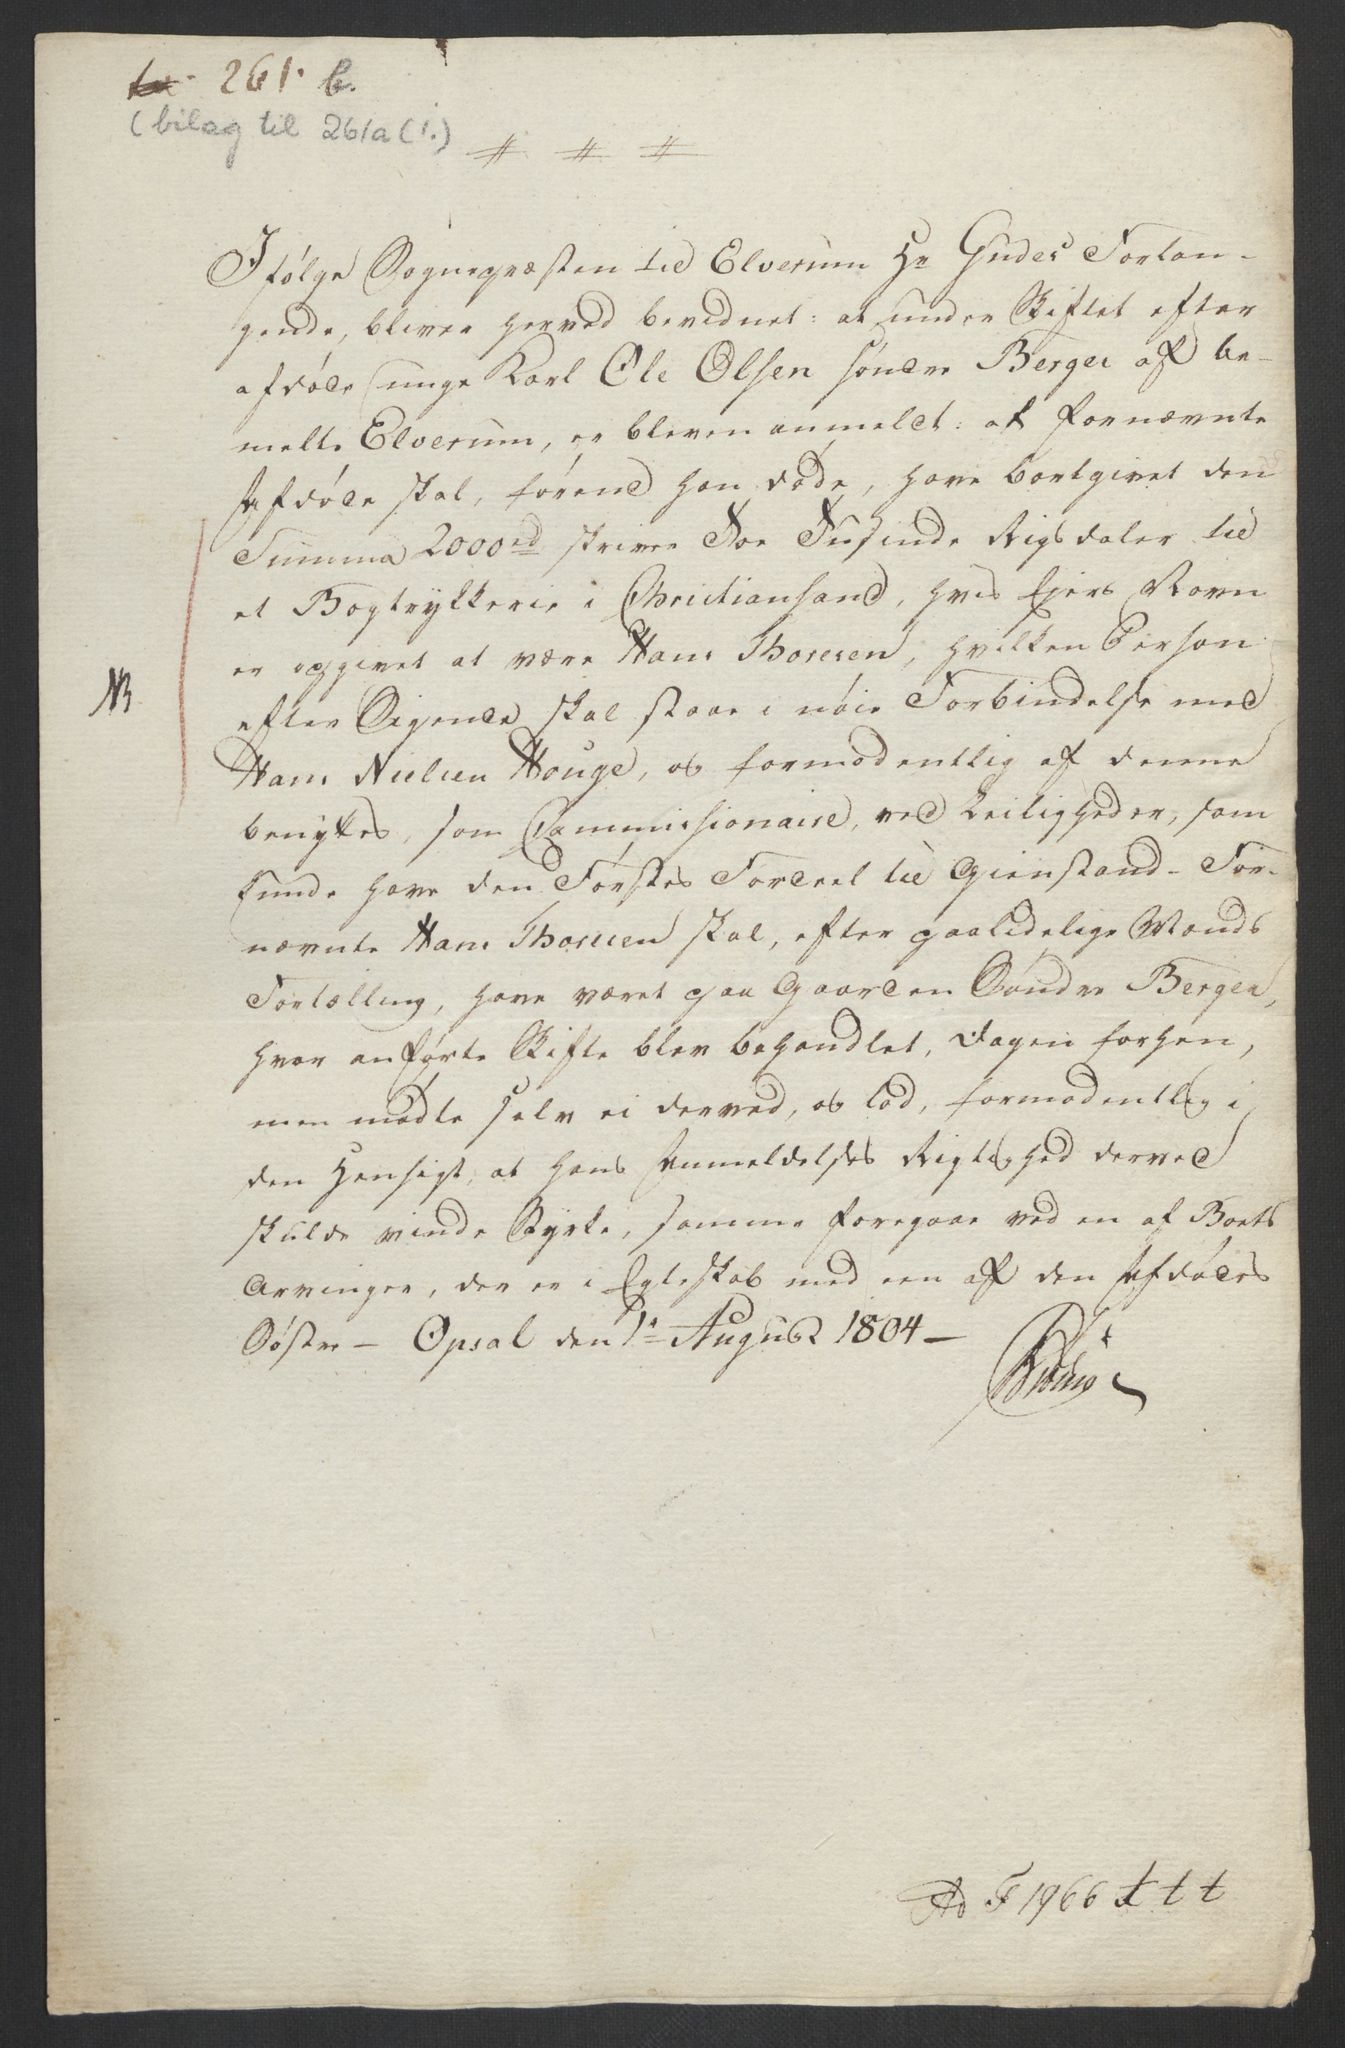 261. b.
(bilag til 261a (1.)
# # #
Ifølge Sognepræsten til Elverum Hr Gudes Forlan-
gende, bliver herved bevidnet: at under Skiftet efter
afdøde unge Karl Ole Olsen søndre Berger af be-
melte Elverum, er bleven anmeldt: at fornævnte
Afdøde skal, førend han døde, have bortgivet den
Summa 2000rd skriver Toe Tusinde Rigsdaler til
et Bogtrykkerie i Christiansand, hvis Ejers Navn
er opgivet at være Hans Thoresen, hvilken Person
NB
efter Sigende skal staae i nøie Forbindelse med
Hans Nielsen Houge, og formodentlig af denne
benyttes, som Commissionaire, ved Leiligheder, som
kunde have den Førstes Fordeel til Gienstand - For-
nævnte Hans Thoresen skal, efter paalidelige Mænds
Fortælling, have været paa Gaarden Søndre Berger,
hvor anførte Skifte blev behandlet, Dagen forhen,
men mødte selv ei derved, og lod, formodentlig i
den Hensigt, at hans Anmeldelses Rigtighed derved
skulde vinde Styrke, samme foregaae ved en af Boets
Arvinger, der er i Egteskab med een af den Afdødes
Søstre - Opsal den 1te August 1804 -
Ad F 1966 t t t